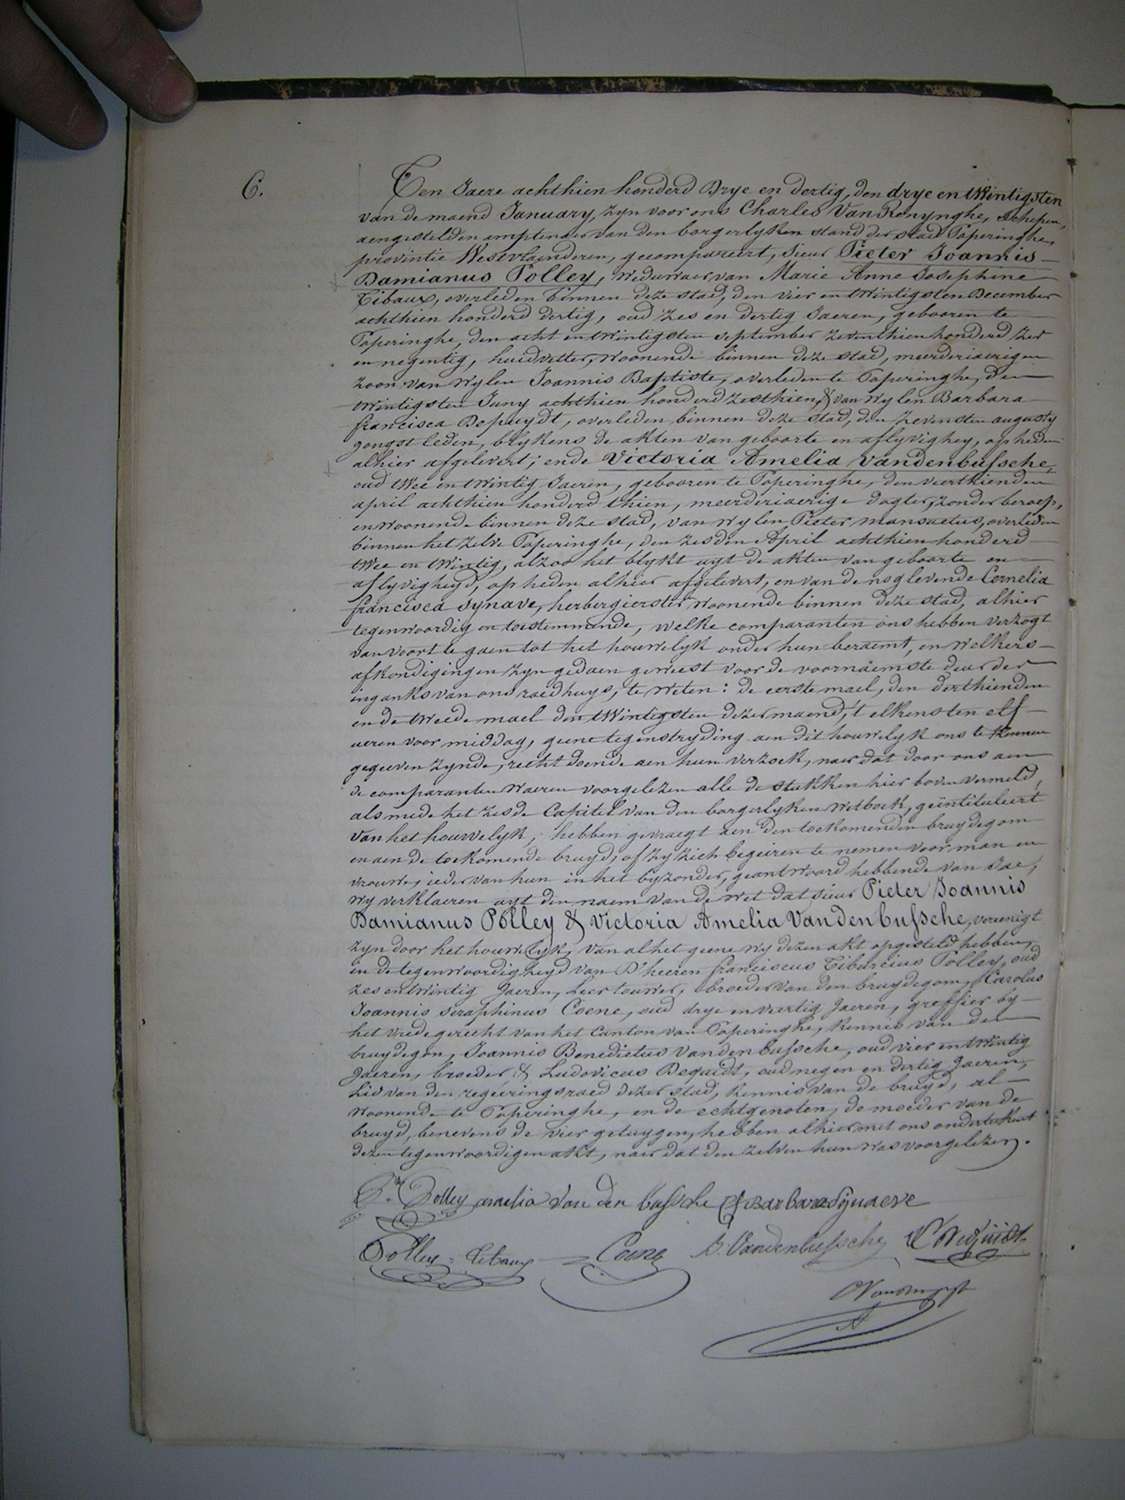 6.
Ten Jaere achthien honderd Drye en dertig, den drye en twintigsten
van de maend January, zyn voor ons Charles Van Renynghe, Schepen,
aengestelden amptenaer van den borgerlyken stand der stad Poperinghe,
provintie Westvlaenderen, gecompareert, Sieur Pieter Joannis
Damianus Polley, weduwaer van Marie Anne Josephine
Tibaux, overleden binnen deze stad, den vier en twintigsten December
achthien honderd dertig, oud zes en dertig Jaeren, gebooren te
Poperinghe, den acht en twintigsten september zeventhien honderd zes
en negentig, huidvetter, woonende binnen deze stad, meerderjaerigen
zoon van wylen Joannis Baptiste, overleden te Poperinghe, den
twintigsten Juny achthien honderd zesthien, & van wylen Barbara
francisca Depuydt, overleden binnen deze stad, den zevensten augusty
jongst leden, blykens de akten van geboorte en aflyvighey, op heden
alhier afgelevert; ende Victoria Amelia Vandenbussche,
oud twee en twintig Jaeren, gebooren te Poperinghe, den veerthienden
april achthien honderd thien, meerderjaerige dogter, zonder beroep,
en woonende binnen deze stad, van wylen Pieter mansuetus, overleden
binnen het zelve Poperinghe, den zesden April achthien honderd
twee en twintig, alzoo het blykt uyt de akten van geboorte en
aflyvigheyd, op heden alhier afgelevert, en van de nog levende Cornelia
francisca Synave, herbergierster woonende binnen deze stad, alhier
tegenwoordig en toestemmende, welke comparanten ons hebben verzogt
van voort te gaen tot het houwelyk onder hun beraemt, en welkers
afkondigingen zyn gedaen geweest voor de voornaemste deur der
inganks van ons raedhuys, te weten: de eerste mael, den derthienden
en de tweede mael den twintigsten dezer maend, 't elkensten elf
ueren voor middag, geene tegenstryding aen dit houwelyk ons te kennen
gegeeven zynde, recht doende aen hun verzoek, naer dat door ons aen
de comparanten waeren voorgelezen alle de stukken hier boven vermeld,
als mede het zesde Capittel van den borgerlyken wetboek, geïntituleert
van het houwelyk, hebben gevraegt aen den toekomenden bruydegom
en aen de toekomende bruyd, of zy zich begeiren te nemen voor man en
vrouwe; ieder van hun in het byzonder, geantwoord hebbende van Jae,
wy verklaeren uyt den naem van de wet dat Sieur Pieter Joannis
Damianus Polley & Victoria Amelia Vandenbussche, vereenigt
zyn door het houwelyk, van al het geene wy dezen akt opgesteld hebben,
in de tegenwoordigheyd van D'heeren franciscus Tiburcius Polley, oud
zes en twintig Jaeren, Leertouwer, broeder van den bruydegom, Carolus
Joannis Seraphinus Coene, oud drye en veertig Jaeren, greffier by
het vredegerecht van het Canton van Poperinghe, kennis van den
bruydegom, Joannis Benedictus Vandenbussche, oud vier en twintig
Jaeren, broeder & Ludovicus Dequidt, oud negen en dertig Jaeren,
Lid van den regeeringsraed dezer stad, kennis van de bruyd, al
woonende te Poperinghe, en de echtgenoten, de moeder van de
bruyd, benevens de vier getuygen, hebben alhier met ons onderteekent
dezen tegenwoordigen akt, naer dat den zelven hun was voorgelezen.
Polley amelia van den bussche Barbara Synaeve
Polley = Tibaux Coene B. Vandenbussche Dequidt